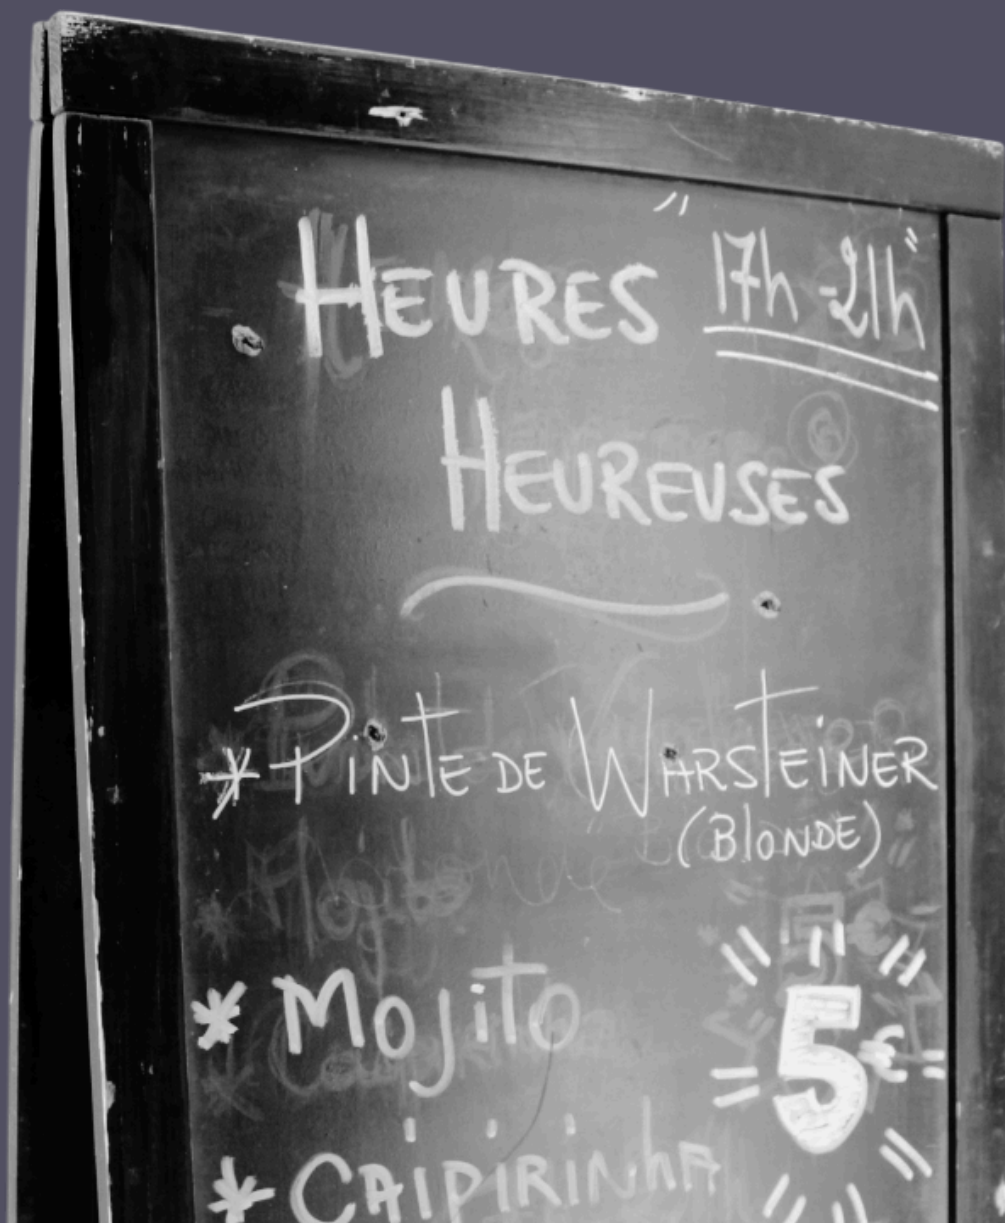 HEURES "17h-21h"
HEUREUSES
* PINTE DE WARSTEINER
(BlONDE)
* MOJiTO
5€
* CAIPIRINhA